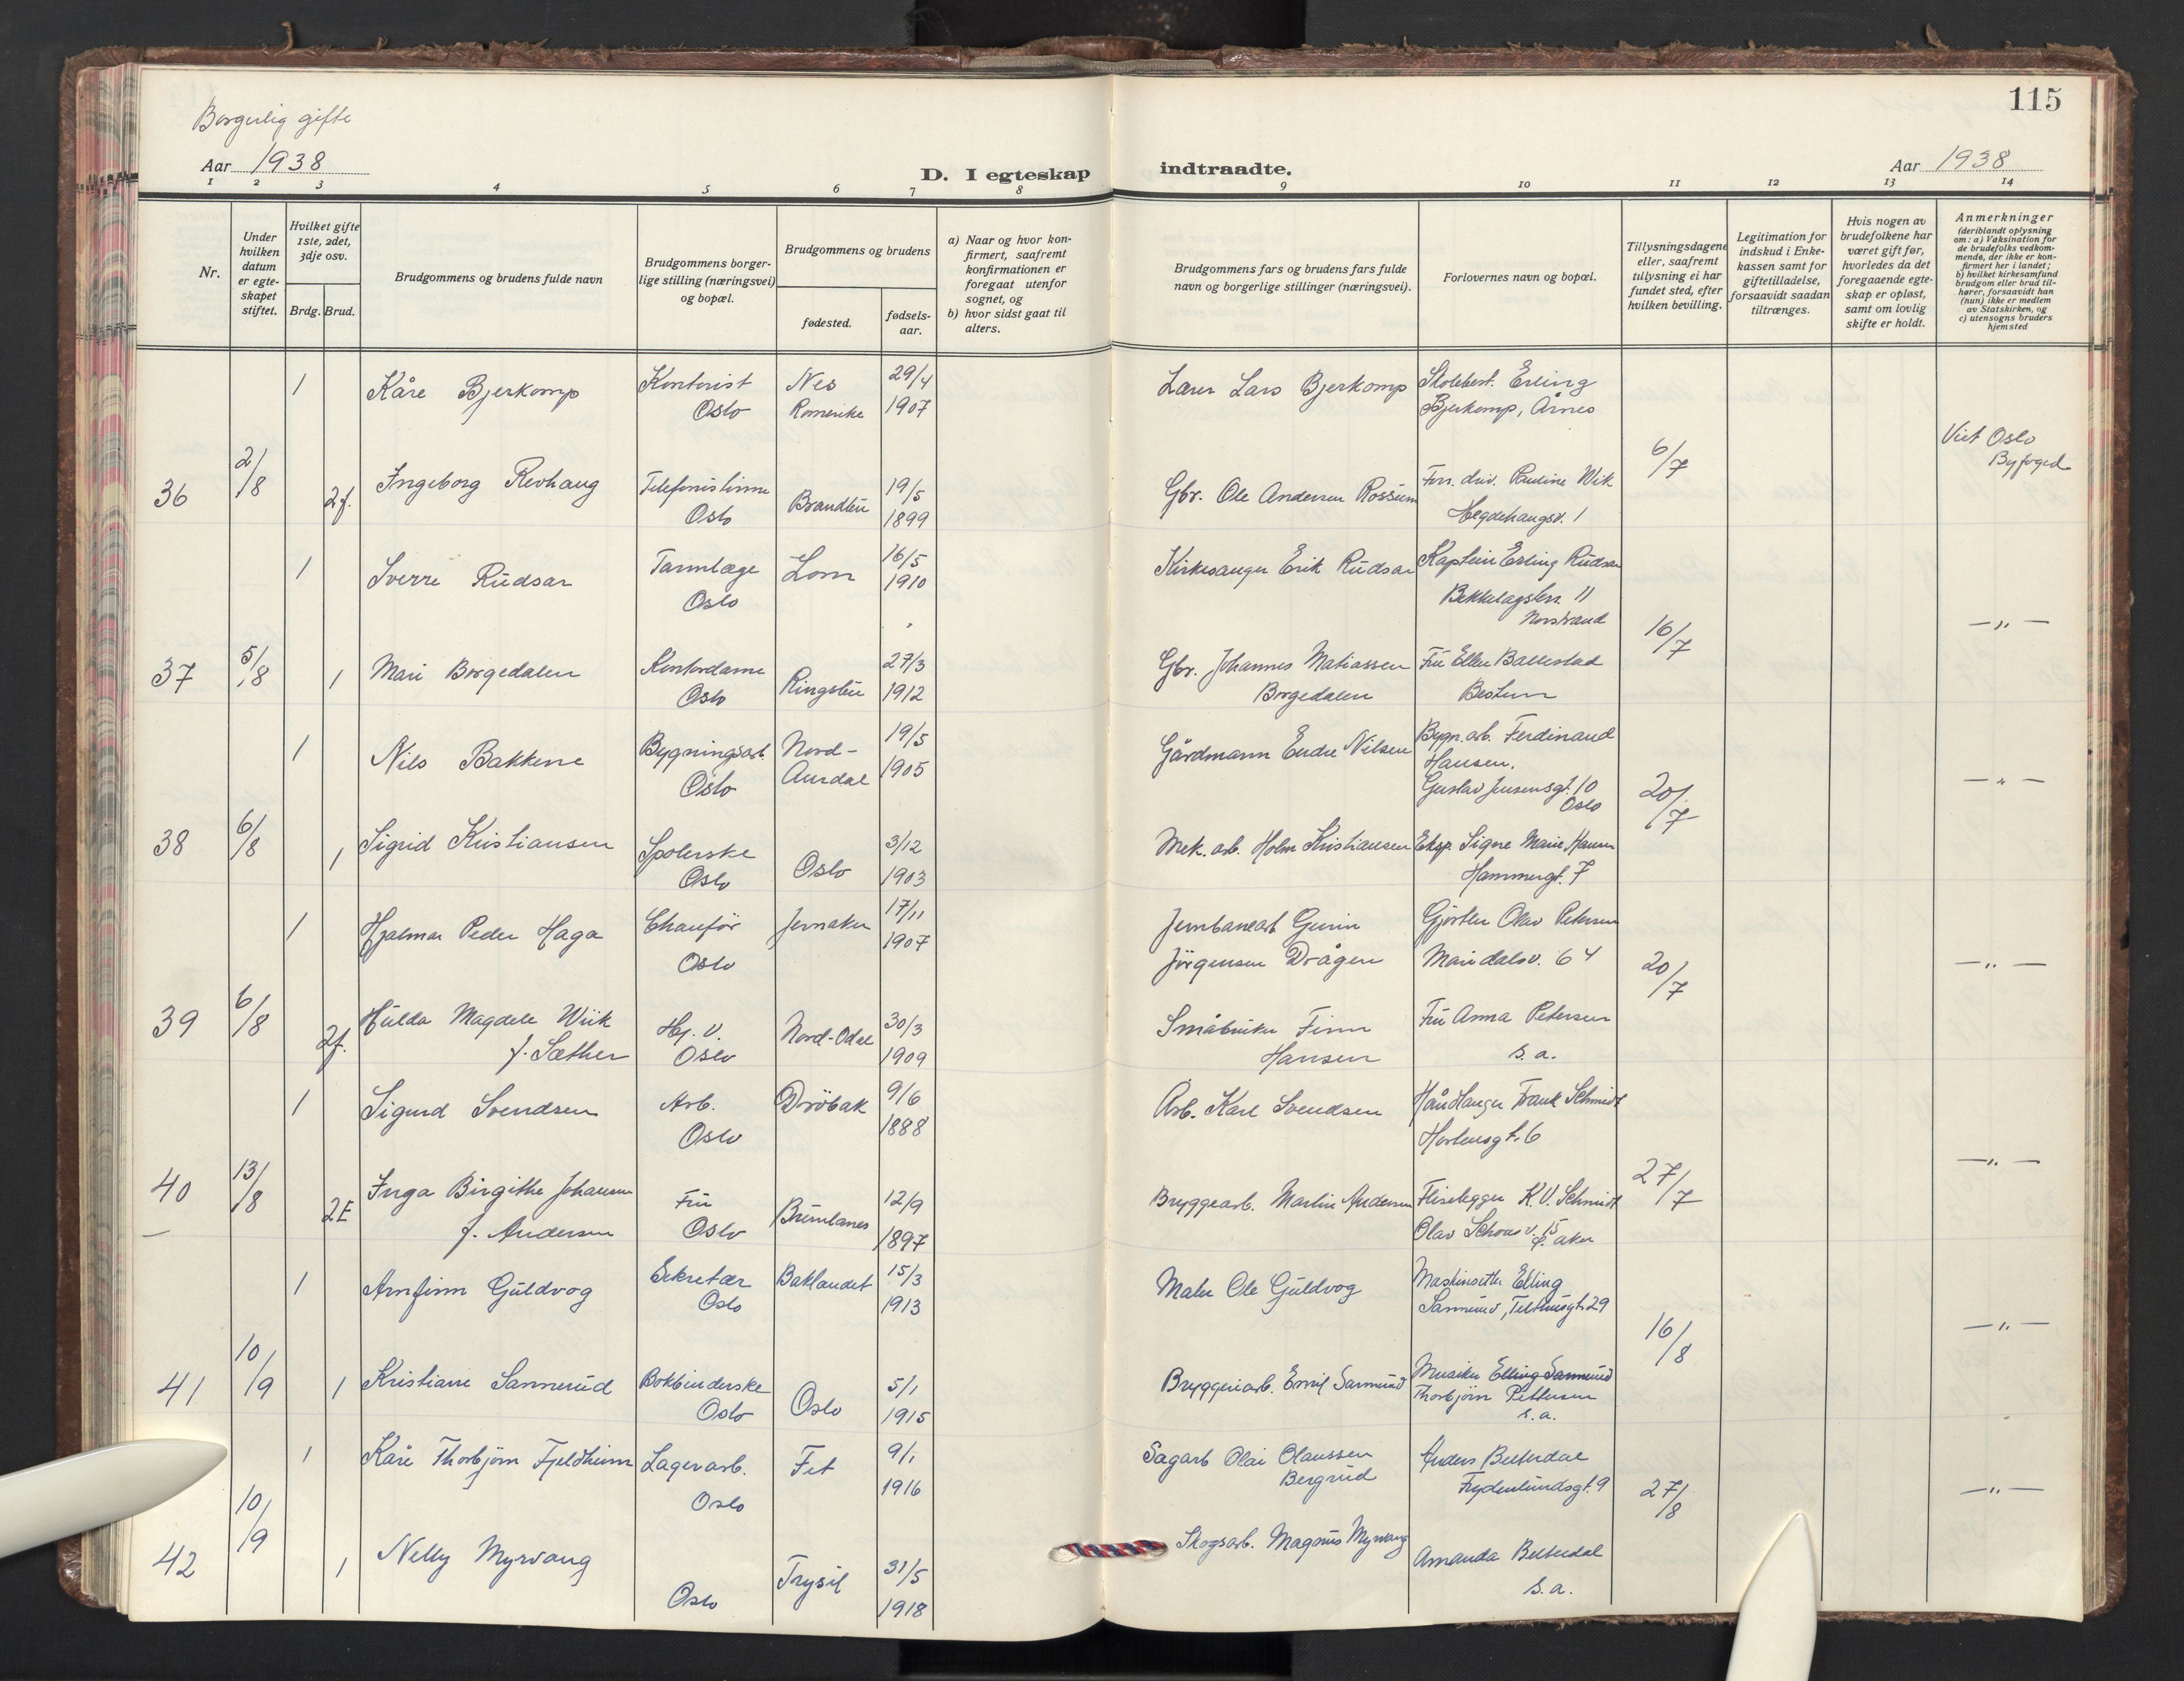 Borgerlig gifte
115
Aar 1938
D. I egteskap indtraadte.
Aar 1938
1 2 3 4 5 6 7 8 9 10 11 12 13 14
Nr.
Under
hvilken
datum
er egte-
skapet
stiftet.
Hvilket gifte
1ste, 2det,
3dje osv.
Brdg. Brud.
Brudgommens og brudens fulde navn
Brudgommens borger-
lige stilling (næringsvei)
og bopæl.
Brudgommens og brudens
fødested.
fødsels-
aar.
a) Naar og hvor kon-
firmert, saafremt
konfirmationen er
foregaat utenfor
sognet, og
b) hvor sidst gaat til
alters.
Brudgommens fars og brudens fars fulde
navn og borgerlige stillinger (næringsvei).
Forlovernes navn og bopæl.
Tillysningsdagene
eller, saafremt
tillysning ei har
fundet sted, efter
hvilken bevilling.
Legitimation for
indskud i Enke-
kassen samt for
giftetilladelse,
forsaavidt saadan
tiltrænges.
Hvis nogen av
brudefolkene har
været gift før,
hvorledes da det
foregaaende egte-
skap er opløst,
samt om lovlig
skifte er holdt.
Anmerkninger
(deriblandt oplysning
om: a) Vaksination for
de brudefolks vedkom-
mende, der ikke er kon-
firmert her i landet;
b) hvilket kirkesamfund
brudgom eller brud til-
hører, forsaavidt han
(hun) ikke er medlem
av Statskirken, og
c) utensogns bruders
hjemsted
1 Kåre Bjerkomp Kontorist Nes 29/4 Lærer Lars Bjerkomp Erling
Oslo Romerike 1907 Bjerkomp, Årnes
36 2/8 2f. Ingeborg Revhaug Telefonistinne Brandbu 19/5 Gbr. Ole Andersen Rossum Forr. driv. Pauline Wik 6/7 Viet Oslo
Oslo 1899 Hegdehaugsv. 1 Byfoged
1 Sverre Rudsar Tannlæge Lom 16/5 Kirkesanger Erik Rudsar Kaptein Erling Rudsar
Oslo 1910 Bekkelagsterr. 11
Norstrand
37 5/8 1 Mari Borgedalen Kontordame Ringebu 27/3 Gbr. Johannes Matiassen Fru Ellen Ballestad 16/7 —"—
Oslo 1912 Borgedalen Bestum
1 Nils Bakkene Bygningsarb. Nord- 19/5 Gårdmann Endre Nilsen Bygn.arb. Ferdinand
Oslo Aurdal 1905 Hansen.
Gustav Jensensgt. 10
Oslo
38 6/8 1 Sigrid Kristiansen Spolerske Oslo 3/12 Mek. arb. Holm Kristiansen Eksp. Signe Marie Hansen 20/7 —"—
Oslo 1903 Hammergt. 7
1 Hjalmar Peder Haga Chauför Jevnaker 17/11 Jernbanearb Olav Petersen
Oslo 1907 Jörgensen Drågen Maridalsv. 64
39 6/8 2f. Hulda Magdele Wiik Hj. v. Nord-Odal 30/3 Småbruker Finn Fru Anna Petersen 20/7 —"—
f. Sæther Oslo 1909 Hansen s. a.
1 Sigurd Svendsen Arb. Dröbak 9/6 Arb. Karl Svendsen Håndlanger Frank Schmidt
Oslo 1888 Hortensgt. 6
40 13/8 2E Inga Birgithe Johansen Fru Brunlanes 12/9 Bryggearb. Martin Andersen Fliselegger K. V. Schmidt 27/7 —"—
f. Andersen Oslo 1897 Olav Schous v. 15
Ö. Aker
1 Arnfinn Guldvog Sekretær Baklandet 15/3 Maler Ole Guldvog Maskinsetter Elling
Oslo 1913 Sannerud, Telthusgt. 29
41 10/9 1 Kristiane Sannerud Bokbinderske Oslo 5/1 Bryggeriarb. Emil Sannerud Musiker Elling Sannerud 16/8 —"—
Oslo 1915 Thorbjörn Pettersen
s. a.
1 Kåre Thorbjörn Fjeldheim Lagerarb. Fet 9/1 Sagarb Olai Olaussen Anders
Oslo 1916 Bergrud Frydenlundsgt. 9
42 10/9 1 Nelly Myrvang Oslo Trysil 31/5 Skogsarb. Magnus Myrvang Amanda 27/8 —"—
1918 s. a.